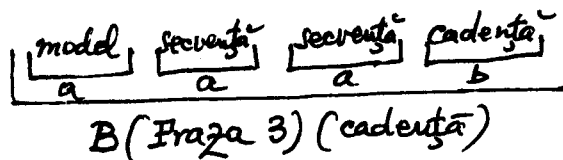 model secvenţă secvenţă cadenţă
a a a b
B (Fraza 3) (cadenţă)